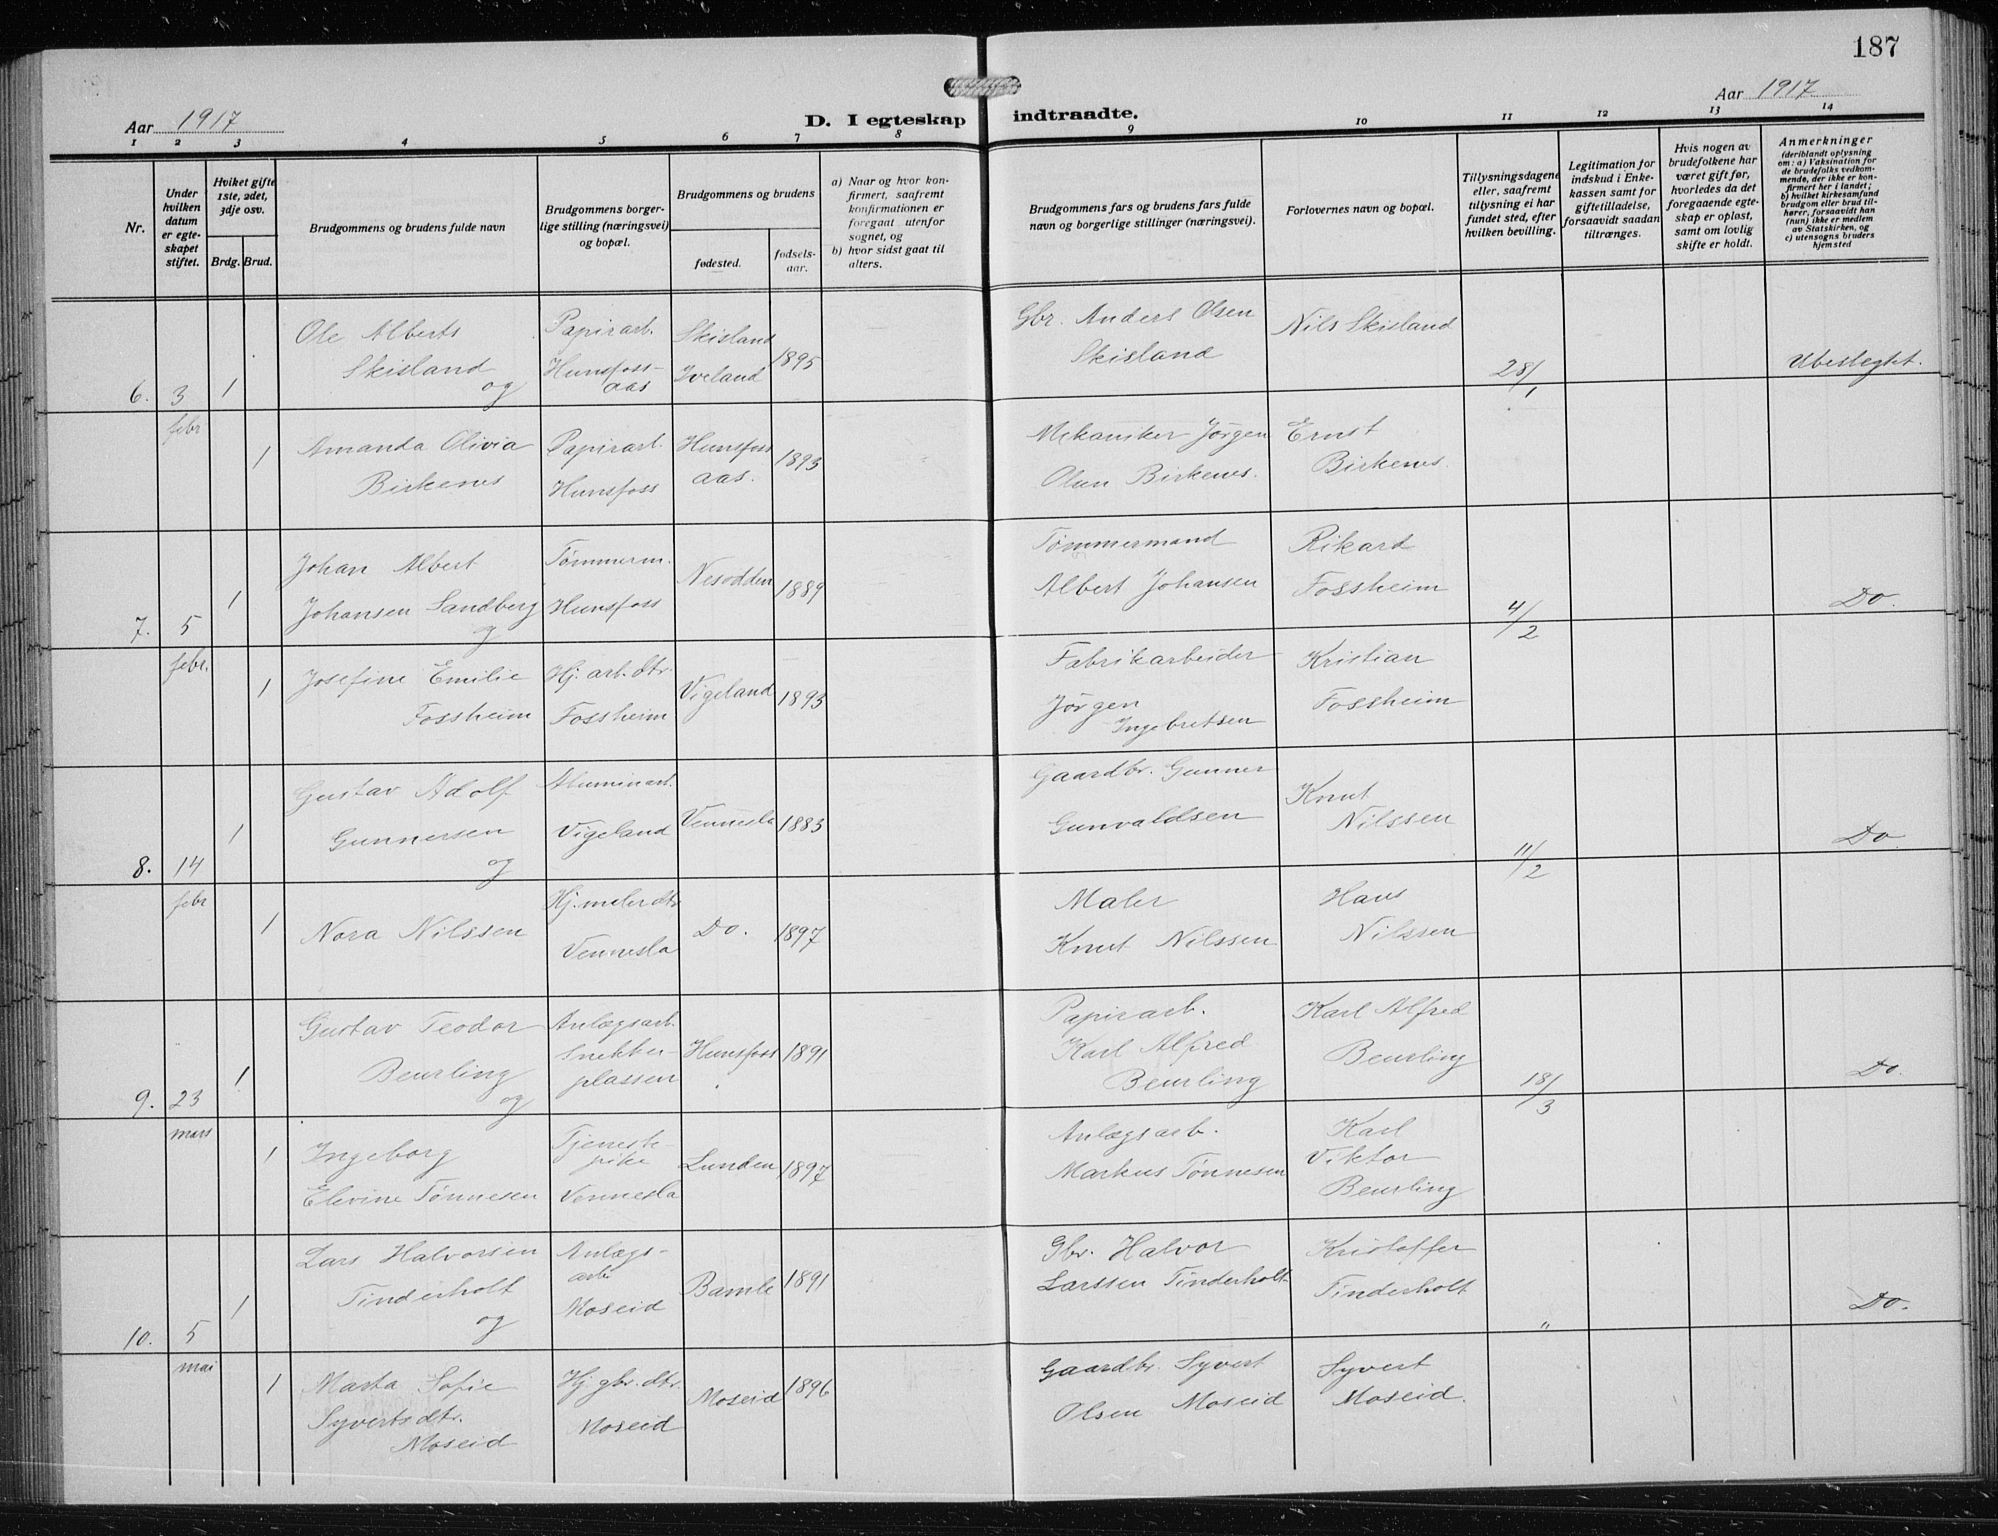 187
Aar 1917
Aar 1917
D. I egteskap indtraadte.
1 2 3 4 5 6 7 8 9 10 11 12 13 14
Nr.
Under
hvilken
datum
er egte-
skapet
stiftet.
Hviket gifte
1ste, 2det,
3dje osv.
Brdg. Brud.
Brudgommens og brudens fulde navn
Brudgommens borger-
lige stilling (næringsvei)
og bopæl.
Brudgommens og brudens
fødested.
fødsels-
aar.
a) Naar og hvor kon-
firmert, saafremt
konfirmationen er
foregaat utenfor
sognet, og
b) hvor sidst gaat til
alters.
Brudgommens fars og brudens fars fulde
navn og borgerlige stillinger (næringsvei).
Forlovernes navn og bopæl.
Tillysningsdagene
eller, saafremt
tillysning ei har
fundet sted, efter
hvilken bevilling.
Legitimation for
indskud i Enke-
kassen samt for
giftetilladelse,
forsaavidt saadan
tiltrænges.
Hvis nogen av
brudefolkene har
været gift før,
hvorledes da det
foregaaende egte-
skap er opløst,
samt om lovlig
skifte er holdt.
Anmerkninger
(deriblandt oplysning
om: a) Vaksination for
de brudefolks vedkom-
mende, der ikke er kon-
firmert her i landet;
b) hvilket kirkesamfund
brudgom eller brud til-
hører, forsaavidt han
(hun) ikke er medlem
av Statskirken, og
c) utensogns bruders
hjemsted
6. 3 febr 1
Ole Alberts
Skisland
og
Papirarb.
Hunsfoss-
aas
Skisland
Iveland
1895
Gbr. Anders Olsen
Skisland
Nils Skisland
28/1
Ubeslegtet.
1
Amanda Olivia
Birkenes
Papirarb.
Hunsfoss
Hunsfoss
aas.
1893
Mekaniker Jørgen
Olsen Birkenes.
Ernst
Birkenes.
7. 5 febr. 1
Johan Albert
Johansen Sandberg
og
Tømmerm.
Hunsfoss
Nesodden
1889
Tømmermand
Albert Johansen
Rikard
Fossheim
4/2
Do.
1
Josefine Emilie
Fossheim
Hj. arb. dtr.
Fossheim
Vigeland
1893
Fabrikarbeider
Jørgen
Ingebretsen
Kristian
Fossheim
8. 14 febr 1
Gustav Adolf
Gunnersen
og
Aluminarb.
Vigeland
Vennesla
1883
Gaardbr. Gunner
Gunvaldsen
Knut
Nilssen
11/2
Do.
1
Nora Nilssen
Hj. maler dtr
Vennesla
Do.
1897
Maler
Knut Nilssen
Hans
Nilssen
9. 23 mars 1
Gustav Teodor
Beurling
og
Anlægsarb.
Snekker-
plassen
Hunsfoss
1891
Papirarb.
Karl Alfred
Beurling
Karl Alfred
Beurling
18/3
Do.
1
Ingeborg
Elevine Tønnesen
Tjeneste-
pike
Vennesla
Lunden
1897
Anlægsarb.
Markus Tønnesen
Karl
Viktor
Beurling
10. 5 mai 1
Lars Halvorsen
Tinderholt
og
Anlægs-
arb.
Moseid
Bamle
1891
Gbr. Halvor
Larssen Tinderholt
Kristoffer
Tinderholt
"
Do.
1
Marta Sofie
Syvertsdtr.
Moseid
Hj. gbr. dtr.
Moseid
Moseid
1896
Gaardbr. Syvert
Olsen Moseid
Syvert
Moseid.